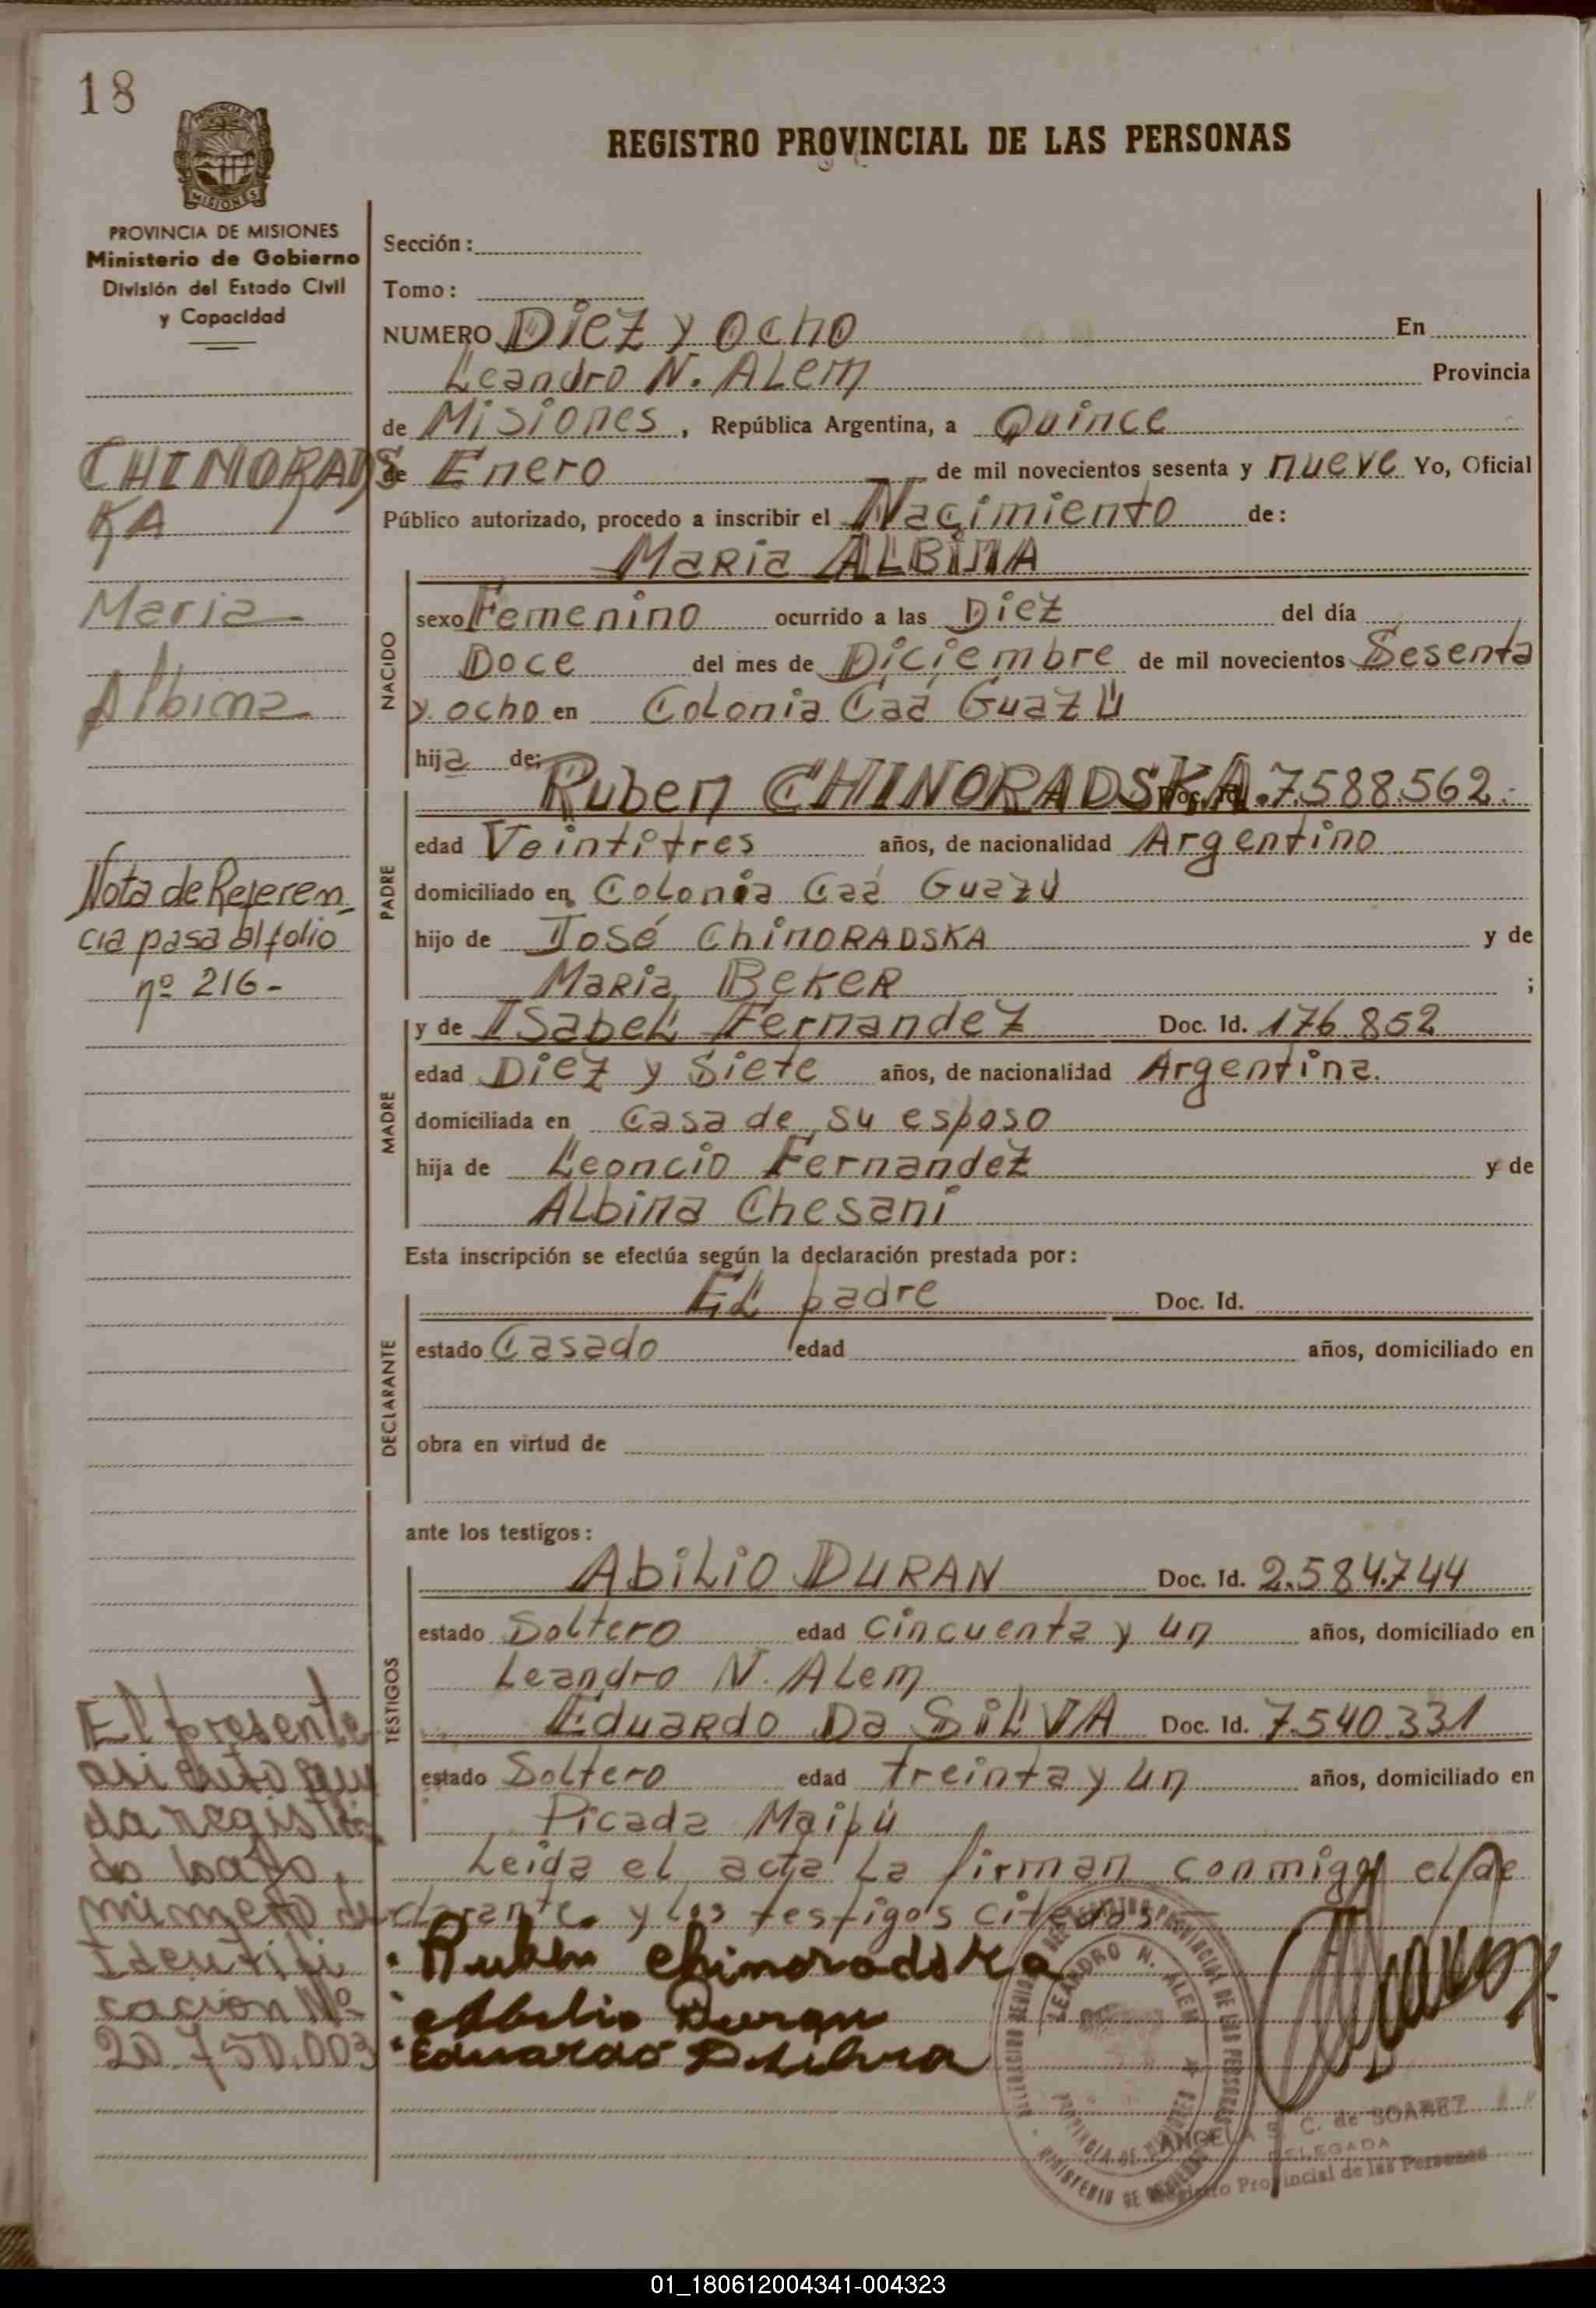 18
PROVINCIA DE MISIONES
Ministerio de Gobierno
División del Estado Civil
y Capacidad
CHINORADS
KA
Maria
Albina
Nota de Referen
cia pasa al folio
nº 216-
El presente
asiento que
da registra
do bajo
número de
Identifi
cacion Nº
20.750.003
REGISTRO PROVINCIAL DE LAS PERSONAS
Sección:
Tomo:
NUMERO Diez y ocho En
Leandro N. Alem Provincia
de Misiones, República Argentina, a Quince
de Enero de mil novecientos sesenta y nueve Yo, Oficial
Público autorizado, procedo a inscribir el Nacimiento de:
Maria ALBINA
NACIDO
sexo Femenino ocurrido a las Diez del día
Doce del mes de Diciembre de mil novecientos Sesenta
y ocho en Colonia Caá Guazú
hija de:
PADRE
Ruben CHINORADSKA Doc. Id. 7.588.562.-
edad Veintitres años, de nacionalidad Argentino
domiciliado en Colonia Caá Guazú
hijo de José ChinORADSKA y de
Maria BekeR ;
MADRE
y de Isabel Fernandez Doc. Id. 176.852
edad Diez y Siete años, de nacionalidad Argentina.
domiciliada en Casa de su esposo
hija de Leoncio Fernández y de
Albina Chesani
Esta inscripción se efectúa según la declaración prestada por:
DECLARANTE
El padre Doc. Id.
estado Casado edad años, domiciliado en
obra en virtud de
ante los testigos:
TESTIGOS
Abilio DURAN Doc. Id. 2.584.744
estado Soltero edad Cincuenta y un años, domiciliado en
Leandro N. Alem
Eduardo Da SilVA Doc. Id. 7.540.331
estado Soltero edad treinta y un años, domiciliado en
Picada Maipú
Leida el acta La firman conmigo el de
clarante y los testigos citados
Ruben Chinoradska
Abilio Duran
Eduardo D Silva
REGISTRO PROVINCIAL DE LAS PERSONAS
LEANDRO N. ALEM
PROVINCIA DE MISIONES
MINISTERIO DE GOBIERNO
ANGELA S. C. de SOAREZ
DELEGADA
Registro Provincial de las Personas
01_180612004341-004323